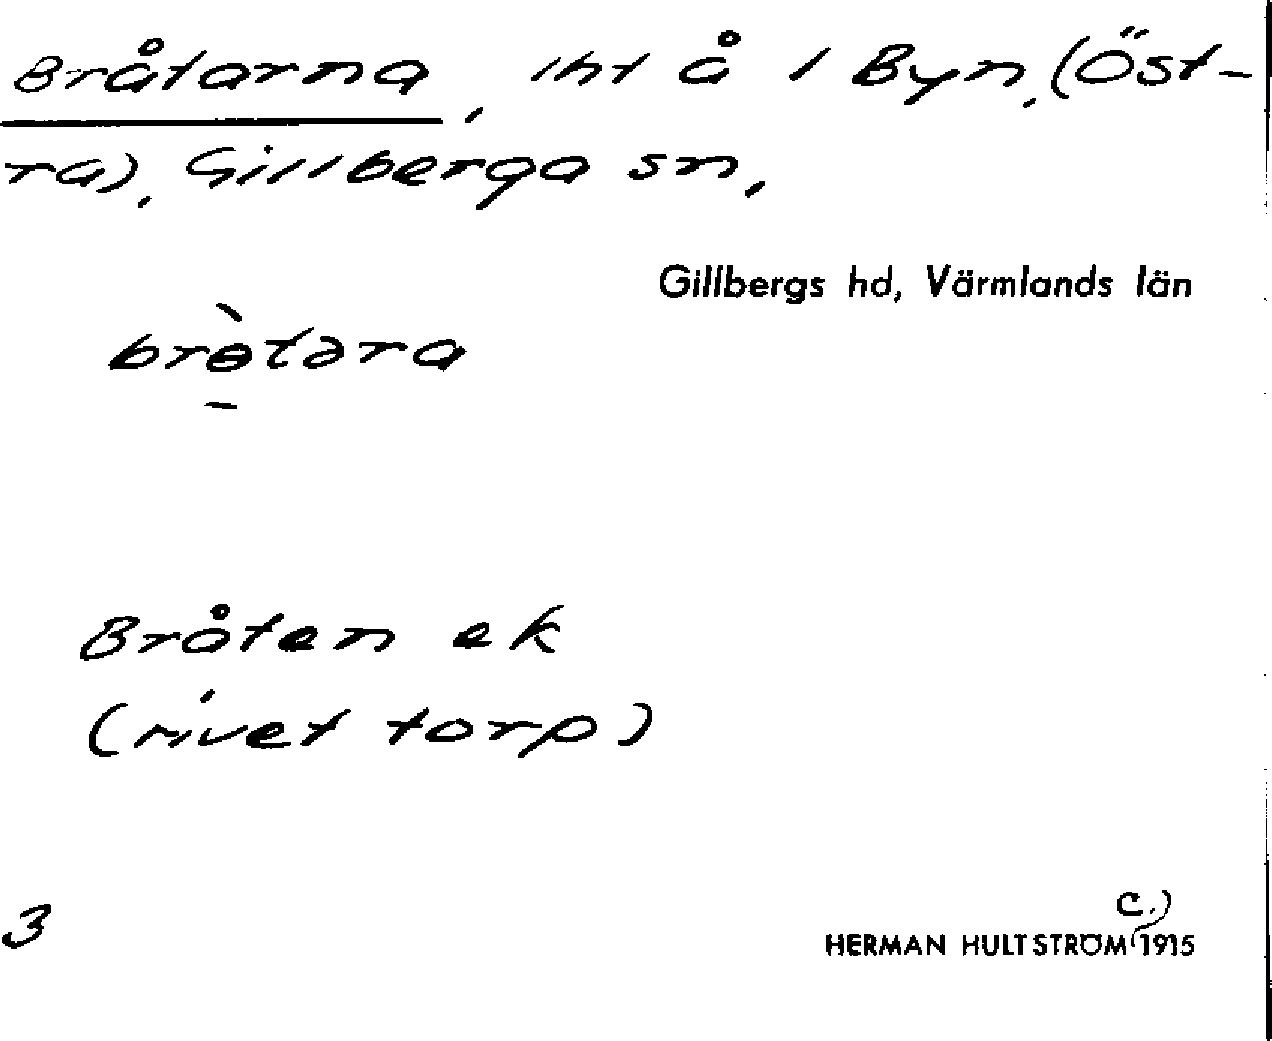 Bråtarna, iht å i Byn, (Öst-
ra), Gillberga sn,
Gillbergs hd, Värmlands län
brɵ̀tara
Bråten ek
(rivet torp)
3
c.)
HERMAN HULTSTRÖM 1915